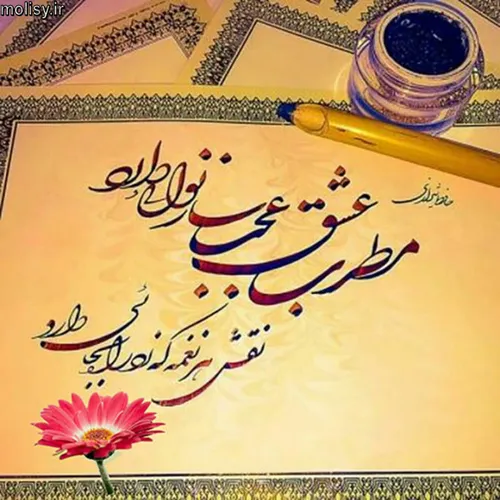 molisy.ir
حافظ شیرازی
مطرب عشق عجب ساز و نوایی دارد
نقش هر نغمه که زد راه به جایی دارد